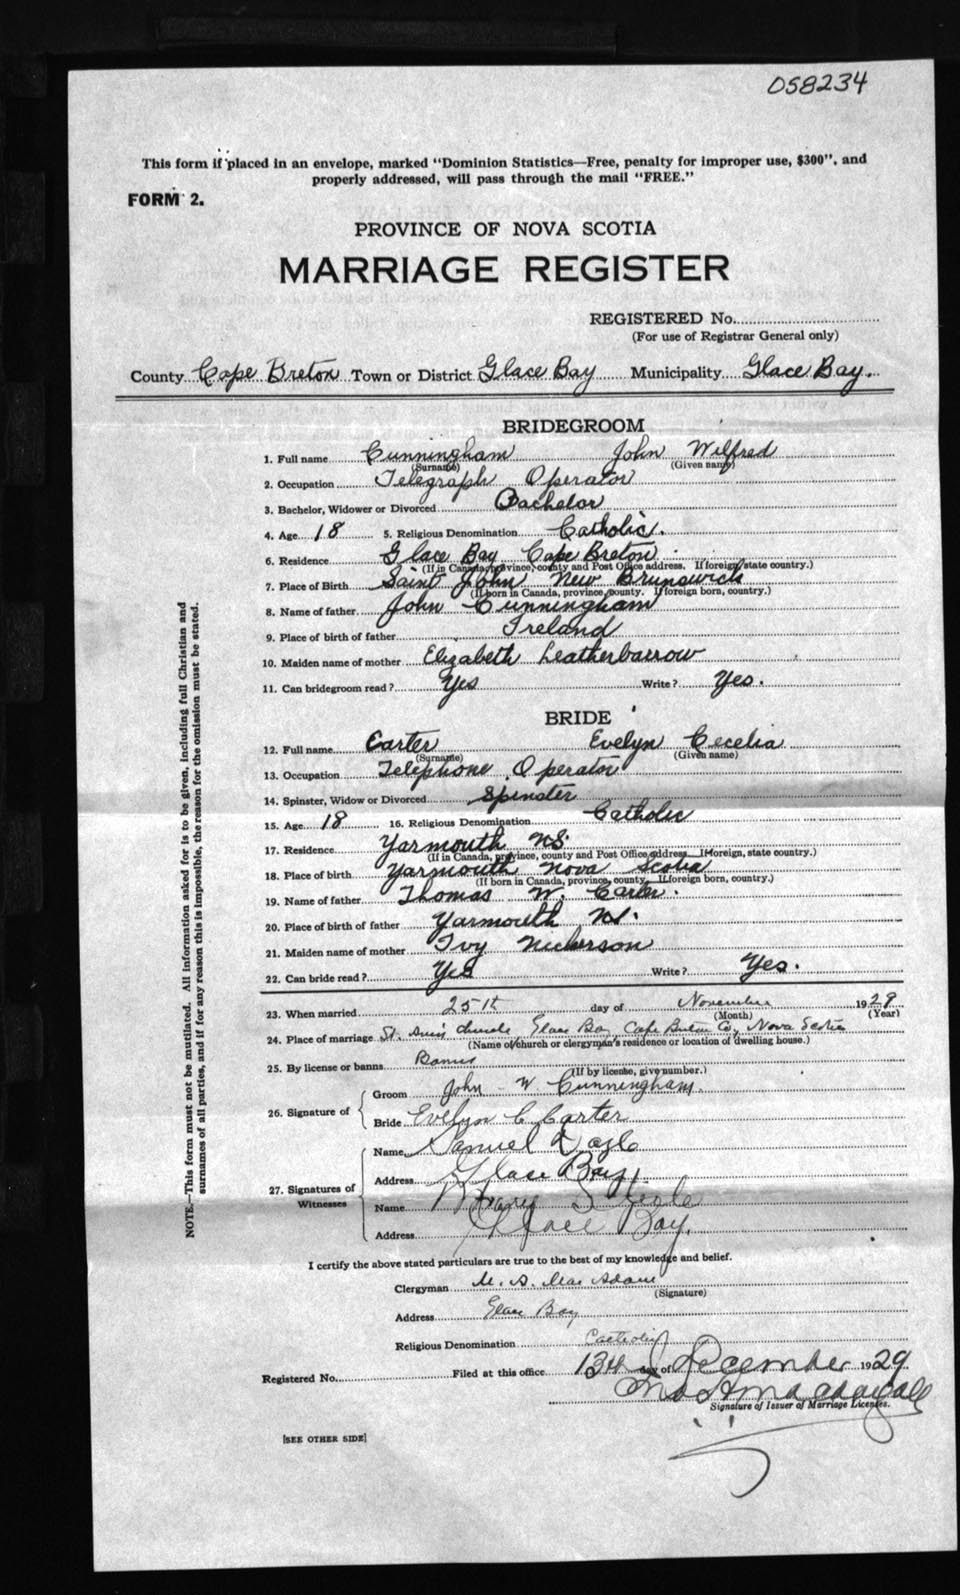 058234
This form if placed in an envelope, marked "Dominion Statistics—Free, penalty for improper use, $300", and
properly addressed, will pass through the mail "FREE."
FORM 2.
PROVINCE OF NOVA SCOTIA
MARRIAGE REGISTER
REGISTERED No.
(For use of Registrar General only)
County Cape Breton Town or District Glace Bay Municipality Glace Bay.
BRIDEGROOM
1. Full name Cunningham John Wilfred
(Surname) (Given name)
2. Occupation Telegraph Operator
3. Bachelor, Widower or Divorced Bachelor
4. Age 18 5. Religious Denomination Catholic.
6. Residence Glace Bay Cape Breton
(If in Canada, province, county and Post Office address. If foreign, state country.)
7. Place of Birth Saint John New Brunswick
(If born in Canada, province, county. If foreign born, country.)
8. Name of father John Cunningham
9. Place of birth of father Ireland
10. Maiden name of mother Elizabeth Leatherbarrow
11. Can bridegroom read? Yes Write? Yes.
BRIDE
12. Full name Carter Evelyn Cecelia
(Surname) (Given name)
13. Occupation Telephone Operator
14. Spinster, Widow or Divorced Spinster
15. Age 18 16. Religious Denomination Catholic
17. Residence Yarmouth N.S.
(If in Canada, province, county and Post Office address. If foreign, state country.)
18. Place of birth Yarmouth Nova Scotia
(If born in Canada, province, county. If foreign born, country.)
19. Name of father Thomas W. Carter.
20. Place of birth of father Yarmouth N.S.
21. Maiden name of mother Ivy Nickerson
22. Can bride read? Yes Write? Yes.
23. When married 25th day of November 1929
(Month) (Year)
24. Place of marriage St. Ann's Church, Glace Bay, Cape Breton Co., Nova Scotia
(Name of church or clergyman's residence or location of dwelling house.)
25. By license or banns Banns
(If by license, give number.)
26. Signature of
Groom John W Cunningham.
Bride Evelyn C Carter
27. Signatures of Witnesses
Name Samuel
Address Glace Bay
Name Mary S
Address Glace Bay.
I certify the above stated particulars are true to the best of my knowledge and belief.
Clergyman M. A. MacAdam
(Signature)
Address Glace Bay
Religious Denomination Catholic
Registered No. Filed at this office 13th day of December 1929
Signature of Issuer of Marriage Licenses.
[SEE OTHER SIDE]
NOTE.—This form must not be mutilated. All information asked for is to be given, including full Christian and
surnames of all parties, and if for any reason this is impossible, the reason for the omission must be stated.